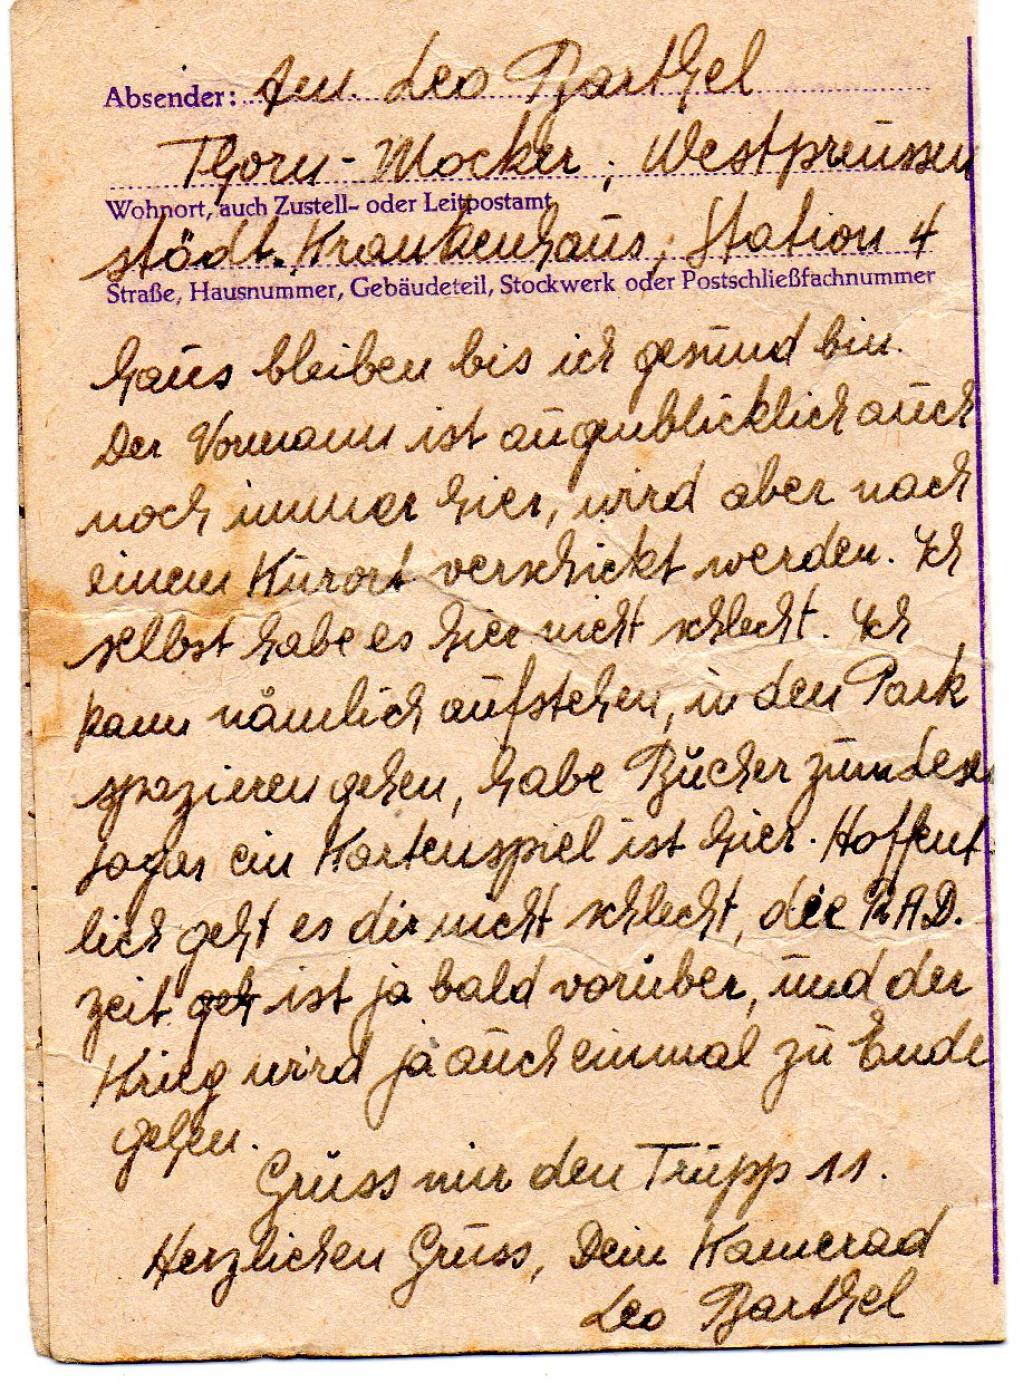 Absender: Am. Leo Barthel
Thorn-Mocker, Westpreussen
Wohnort, auch Zustell- oder Leitpostamt
städt. Krankenhaus, Station 4
Straße, Hausnummer, Gebäudeteil, Stockwerk oder Postschließfachnummer
haus bleiben bis ich gesund bin.
Der Vormann ist augenblicklich auch
noch immer hier, wird aber nach
einem Kurort verschickt werden. Ich
selbst habe es hier nicht schlecht. Ich
kann nämlich aufstehen, in den Park
spazieren gehen, habe Bücher zum Lesen
sogar ein Kartenspiel ist hier. Hoffent-
lich geht es dir nicht schlecht, die R.A.D.
zeit geh ist ja bald vorüber, und der
Krieg wird ja auch einmal zu Ende
gehen.
Grüss mir den Trupp 11.
Herzlichen Gruss, Dein Kamerad
Leo Barthel